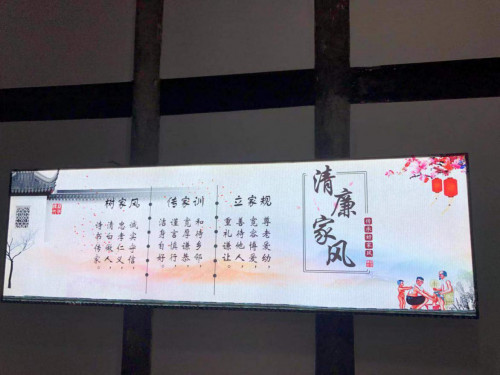 清廉家风
立家规
尊老爱幼
宽容博爱
善待他人
重礼谦让
传家训
和待乡邻
宽厚谦恭
谨言慎行
洁身自好
树家风
诚实守信
忠孝仁义
清白做人
诗书传家